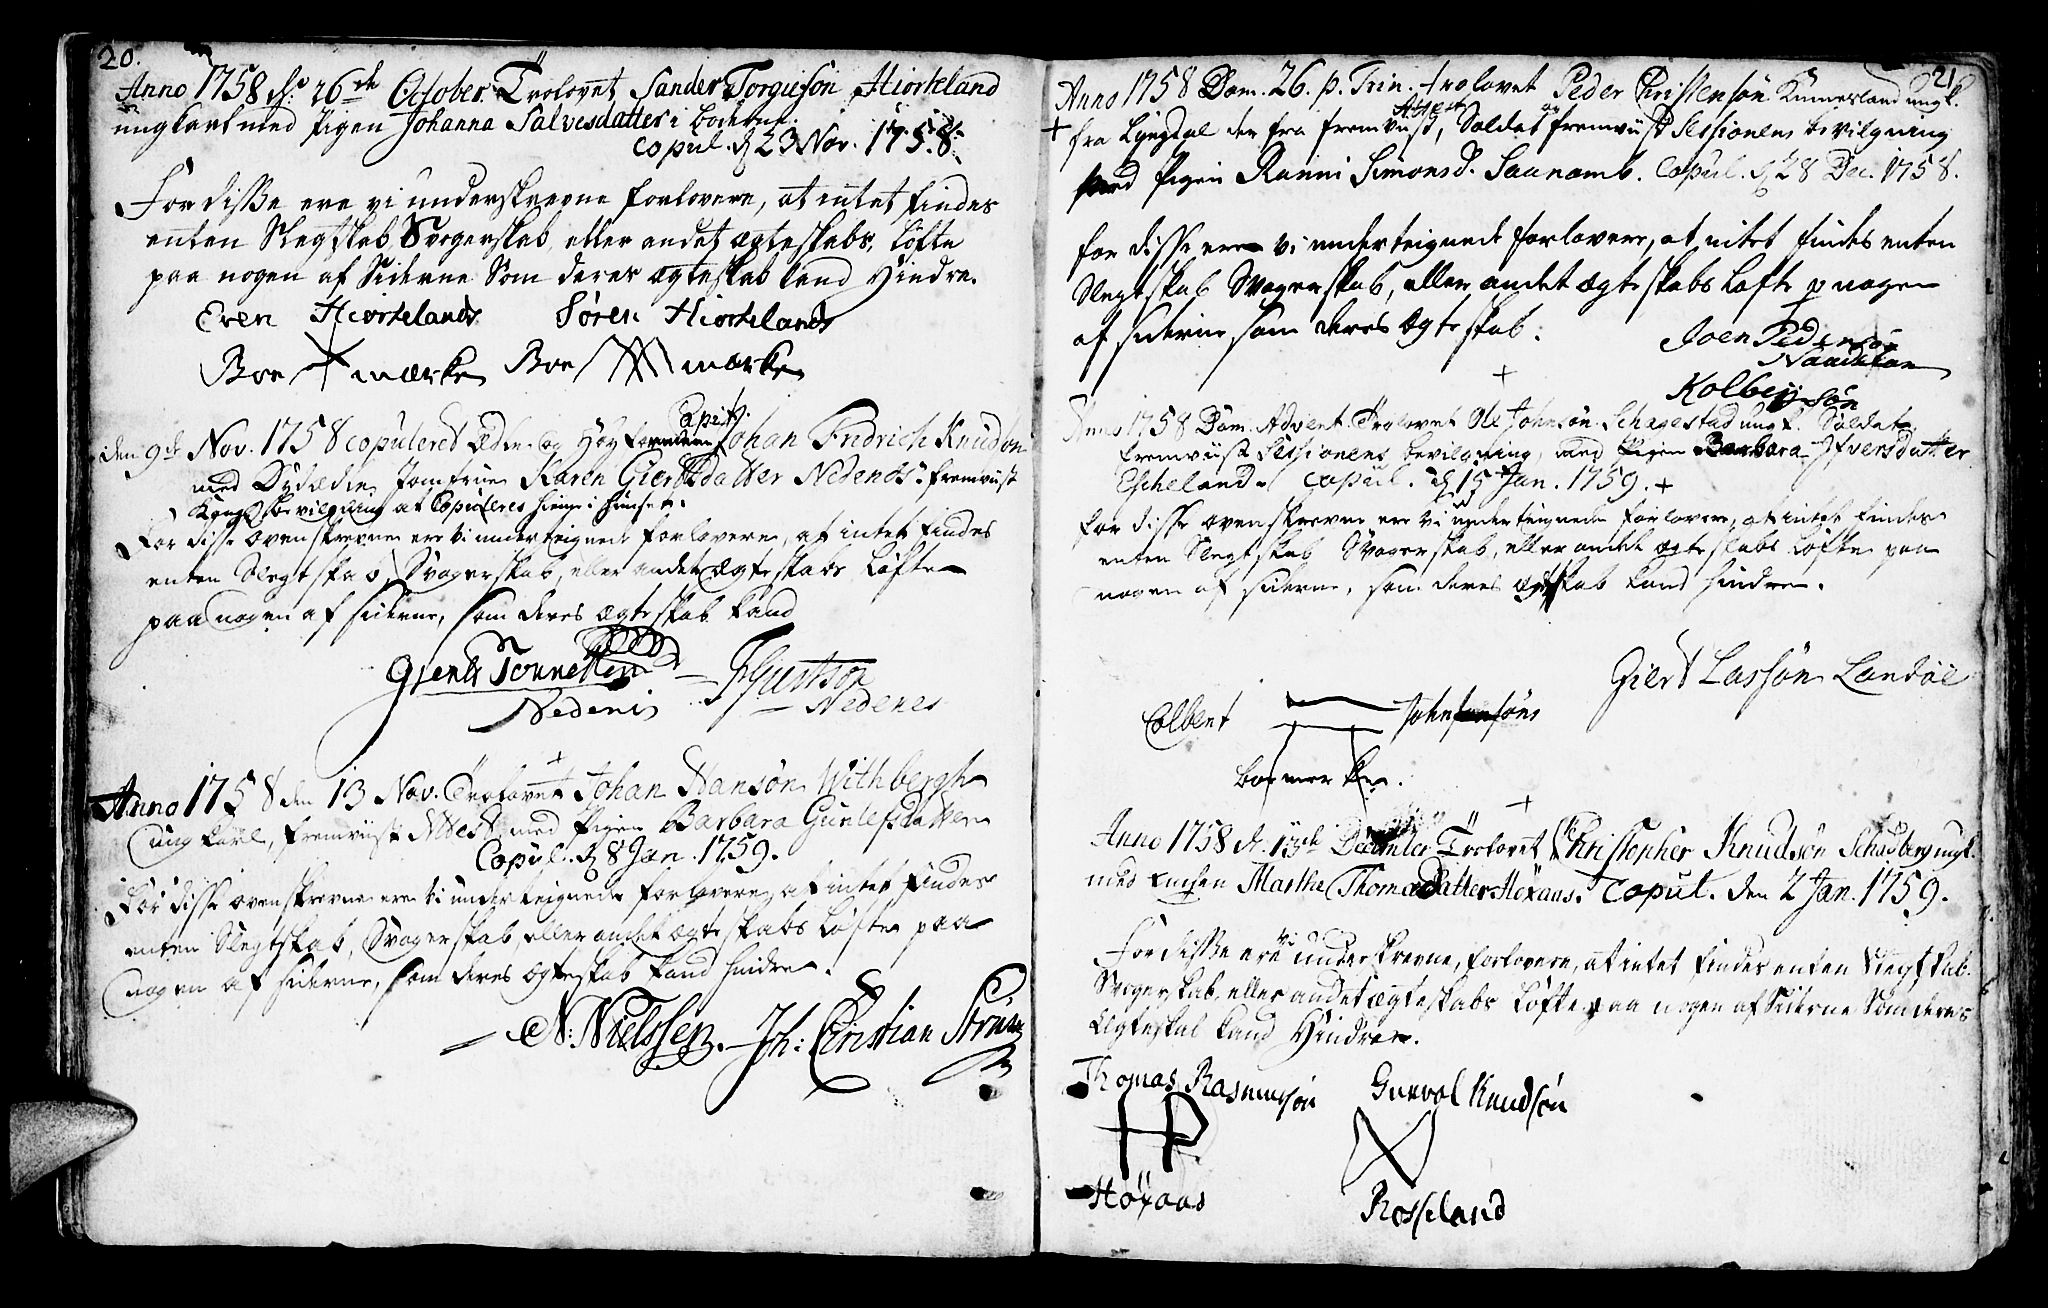 20.
Anno 1758 d. 26de October Trolovet Sander Torgiesøn Hiorteland
ungkarl med Pigen Johanna Salvesdatter i
copul. d 23 Nov. 1758.
For disse ere vi underskrevne forlovere, at intet findes
enten Slegtskab Svogerskab eller andet ægteskabs Løfte
paa nogen af Siderne Som deres ægteskab kand Hindre.
Even Hiortelands Søren Hiortelands
Boe mærke Boe mærke
den 9de Nov. 1758 copuleret Ædle og Høy Capit. Johan Fridrich Knudson
med Dydædle Jomfrue Karen Giertsdatter Nedenes fremviist
Kong. bevilgning at Copuleres hiemme i Huuset.
For disse ovenskrevne ere vi underteignede forlovere, at intet findes
enten Slegtskab, Svogerskab, eller andet Ægteskabs Løfte
paa nogen af siderne, som deres Ægteskab kand
Gierdt Tonnessen
Nedenis Nedenes
Anno 1758 den 13 Nov. Trolovet Johan Hansøn Withbergh
ungkarl, fremviist Attest med Pigen Barbara Gunlefsdatter
Copul. d 8 Jan. 1759.
For disse ovenskrevne ere vi underteignede forlovere, at intet findes
enten Slegtskab, Svogerskab eller andet ægteskabs Løfte paa
nogen af siderne, som deres ægteskab kand hindre.
N: Nielssen. Jh: Christian
21
Anno 1758 Dom. 26. p. Trin. trolovet Peder Christensøn Kunnesland ungk.
Attest og
fra Lyngdal der fra fremviist, Soldat fremviist Sessionens bevilgning
med Pigen Ranni Simonsd. Saanamb. Copul. d 28 Dec. 1758.
for disse ere vi underteignede forlovere, at intet findes enten
Slegtskab Svogerskab, eller andet ægteskabs Løfte p nogen
af siderne som deres Ægteskab:
Joen Pedersøn
Kolben
søn
Anno 1758 Dom. Advent. Trolovet Ole Johnsøn Schagestad ungk. Soldat
fremviist Sessionens bevilgning, med Pigen Barbara Ifversdatter
Escheland. copul. d 15 Jan. 1759.
for disse ovenskrevne ere vi underteignede forlovere, at intet findes
enten Slegtskab Svogerskab, eller andet ægteskabs Løfte paa
nogen af siderne, som deres ægteskab kand hindre.
Giert Lassøn Landøe
Colbent Johnsøns
boemerke.
Anno 1758 d. 13de December Trolovet Christopher Knudsøn Schaaberg ungk.
med Enchen Marthe Thomæ Datter Høxaas. Copul. den 2 Jan. 1759.
For disse ere vi underskrevne, forlovere, at intet findes enten Slegtskab.
Svogerskab, eller andet ægteskabs Løfte paa nogen af Siderne Som deres
Ægteskab kand Hindre.
Thomas Rasmusøn Gunvol Knudsøn
HP
Høxaas Rosseland